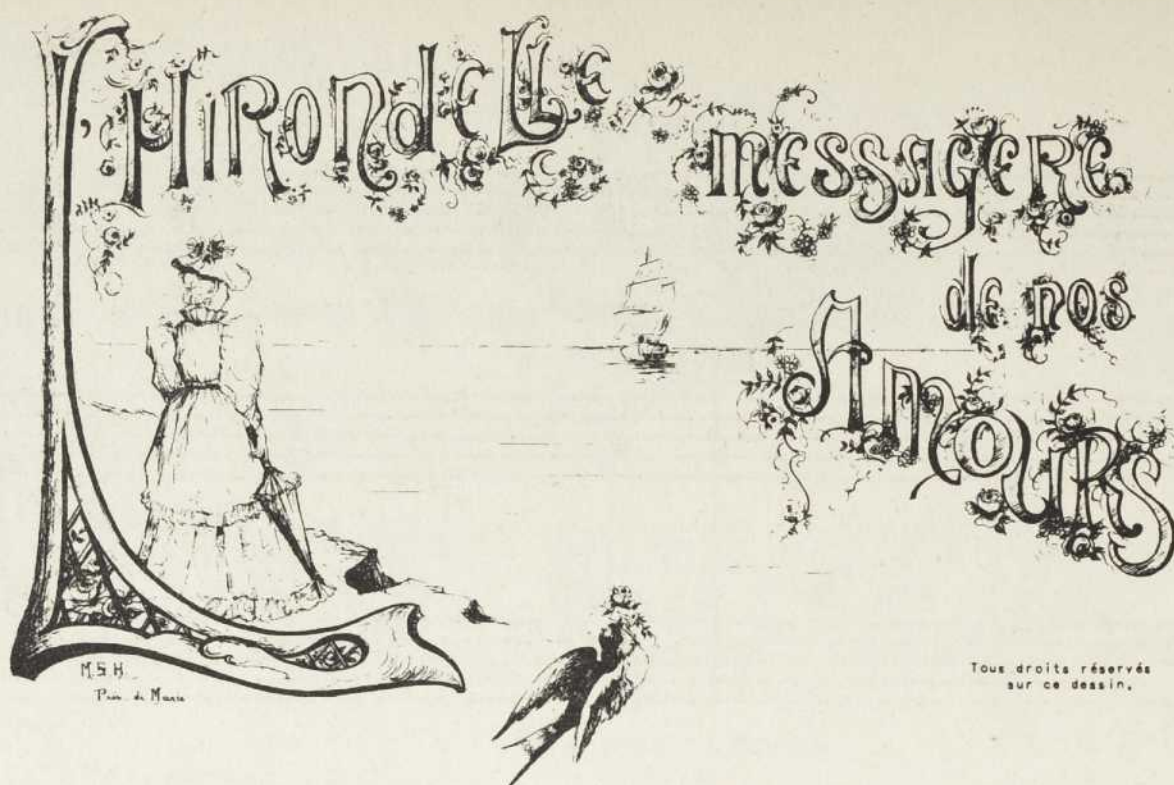 L'HIRONDELLE
MESSAGERE
de nos
AMOURS
M.S.H.
de Marie
Tous droits réservés
sur ce dessin.